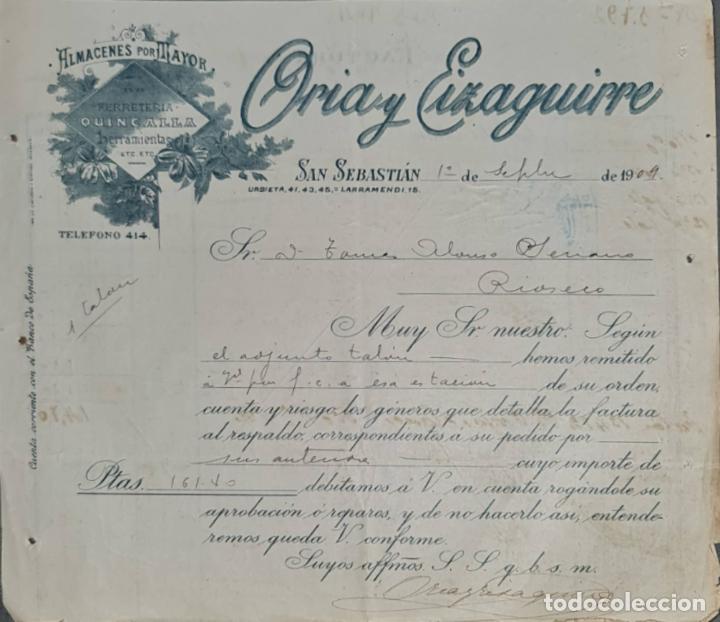 ALMACENES POR MAYOR
DE
FERRETERIA
QUINCALLA
herramientas
ETC. ETC.
TELEFONO 414.
Oria y Eizaguirre
SAN SEBASTIÁN 1º de Septbre de 1909.
URBIETA, 41, 43, 45, Y LARRAMENDI, 15.
Cuenta corriente con el Banco de España
1 talon
Sr. D Tomas Alonso Serrano
Rioseco
Muy Sr. nuestro: Según
el adjunto talón hemos remitido
á Vd por f. c. a esa estación de su orden,
cuenta y riesgo, los géneros que detalla la factura
al respaldo, correspondientes a su pedido por
sus anteriores cuyo importe de
Ptas. 161.40 debitamos á V. en cuenta rogándole su
aprobación ó reparos, y de no hacerlo asi, entende-
remos queda V. conforme.
Suyos affmos. S. S. q. b. s. m.
Oria y Eizaguirre
todocoleccion.net